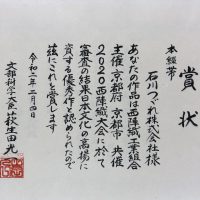 賞状
本綴帯
石川つづれ株式会社様
あなたの作品は西陣織工業組合
主催京都府京都市共催
2020西陣織大会に於て
審査の結果日本文化の高揚に
資する優秀作と認められたので
茲にこれを賞します
令和二年二月四日
文部科学大臣萩生田光一